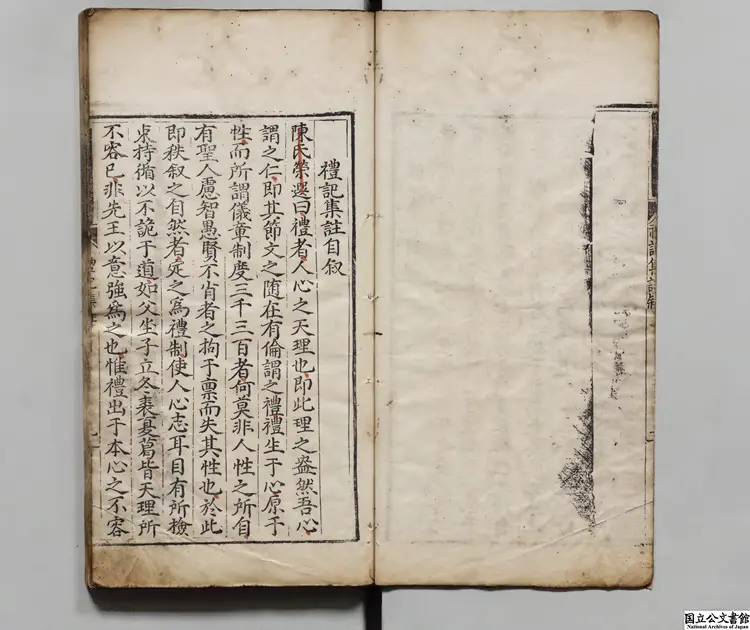 禮記集註自叙
陳氏榮選曰禮者人心之天理也即此理之盎然吾心
謂之仁即其節文之随在有倫謂之禮禮生于心原于
性而所謂儀章制度三千三百者何莫非人性之所自
有聖人慮智愚賢不肖者之拘于禀而失其性也於此
即秩叙之自然者定之為禮制使人心志耳目有所檢
束持循以不詭于道如父坐子立冬裘夏葛皆天理所
不容已非先王以意強為之也惟禮出于本心之不容
国立公文書館
National Archives of Japan